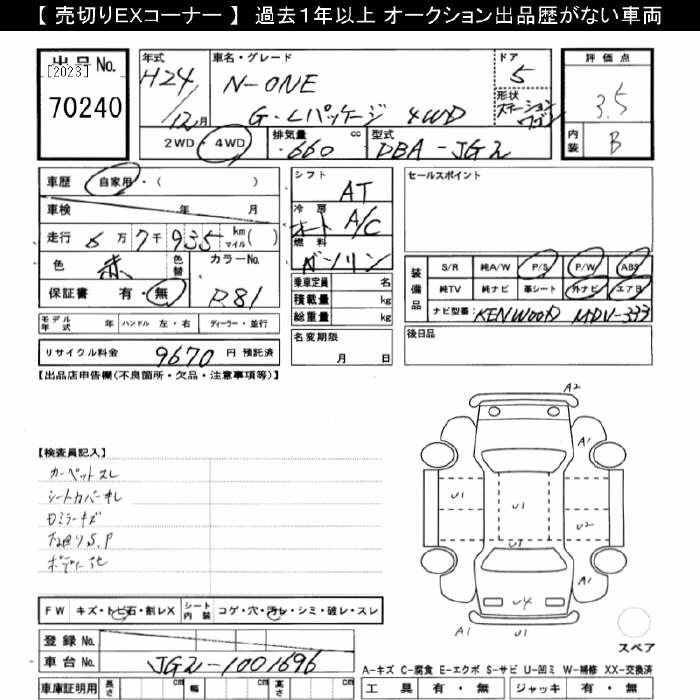 【 売切りEXコーナー 】 過去１年以上 オークション出品歴がない車両
出品 No.
[2023]
70240
年式
H24/12月
車名・グレード
N-ONE
G・Lパッケージ 4WD
ドア
5
形状
ステーションワゴン
評価点
3.5
内装
B
2WD・4WD
排気量 660 cc
型式 DBA-JG2
車歴 自家用・( )
車検 年 月
走行 6万7千935 km マイル ( )
色 赤 色替 カラーNo.
保証書 有・無 R81
モデル年式 年 ハンドル 左・右 ディーラー・並行
リサイクル料金 9670 円 預託済
シフト AT
冷房 オート A/C
燃料 ガソリン
乗車定員 名
積載量 kg
総重量 kg
名変期限
月 日
セールスポイント
装備品
S/R 純A/W P/S P/W ABS
純TV 純ナビ 革シート 外ナビ エアB
ナビ型番: KENWOOD MDV-333
後日品
【出品店申告欄(不良箇所・欠品・注意事項等)】
【検査員記入】
カーペットスレ
シートカバーキレ
Dミラーキズ
S.P
A2
A1
U1
U1
U2
U1
A1
U4
A1
U1
スペア
FW キズ・トビ石・割レX シート内装 コゲ・穴・汚レ・シミ・破レ・スレ
登録 No.
車台 No. JG2-1001696
車庫証明用 長さ cm 幅 cm 高さ cm
A-キズ C-腐食 E-エクボ S-サビ U-凹ミ W-補修 XX-交換済
工具 有・無 ジャッキ 有・無